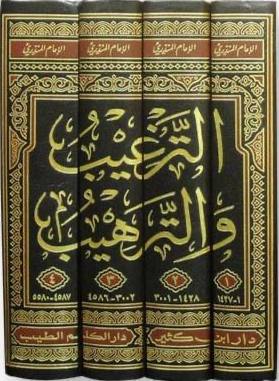 الإمام المنذري الإمام المنذري الإمام المنذري الإمام المنذري
التَّرغيبُ
وَالتَّرهيبُ
١ ٢ ٣ ٤
١-١٤٢٧ ١٤٢٨-٣٠٠١ ٣٠٠٢-٤٥٨٦ ٤٥٨٧-٥٥٨٠
دار ابن كثير دار الكلم الطيب